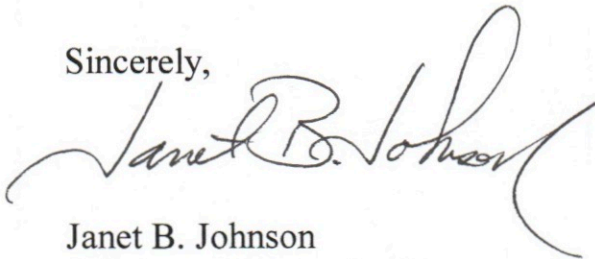 Sincerely,
Janet B. Johnson
Janet B. Johnson